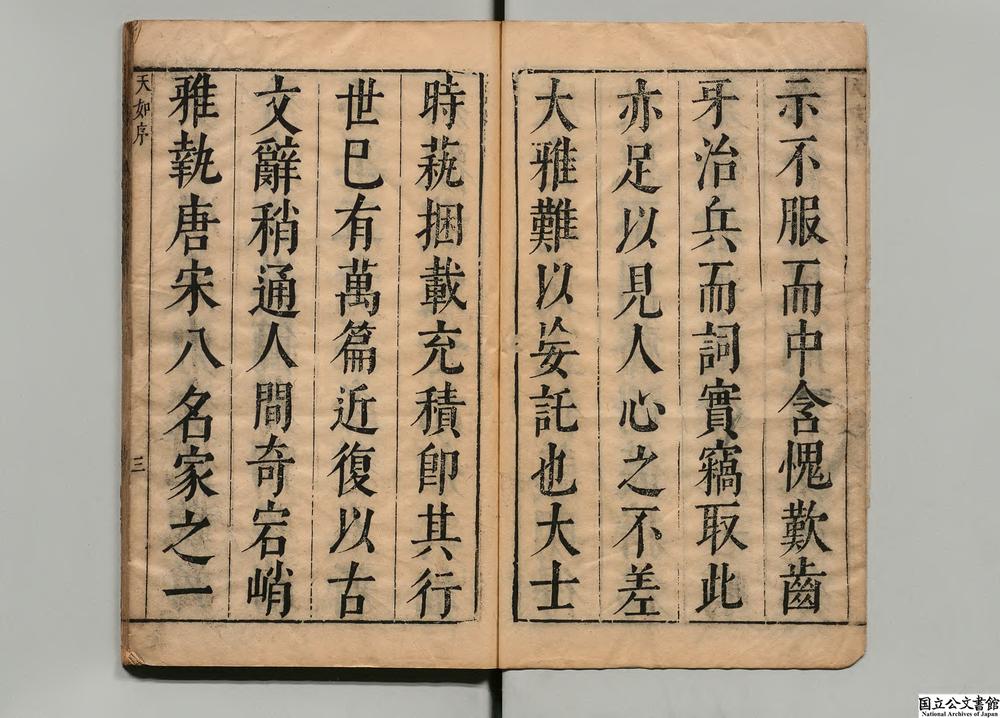 示不服而中含愧歎齒
牙治兵而詞實竊取此
亦足以見人心之不差
大雅難以妄託也大士
時蓺捆載充積即其行
世已有萬篇近復以古
文辭稍通人間奇宕峭
雅執唐宋八名家之一
天如序
三
国立公文書館
National Archives of Japan